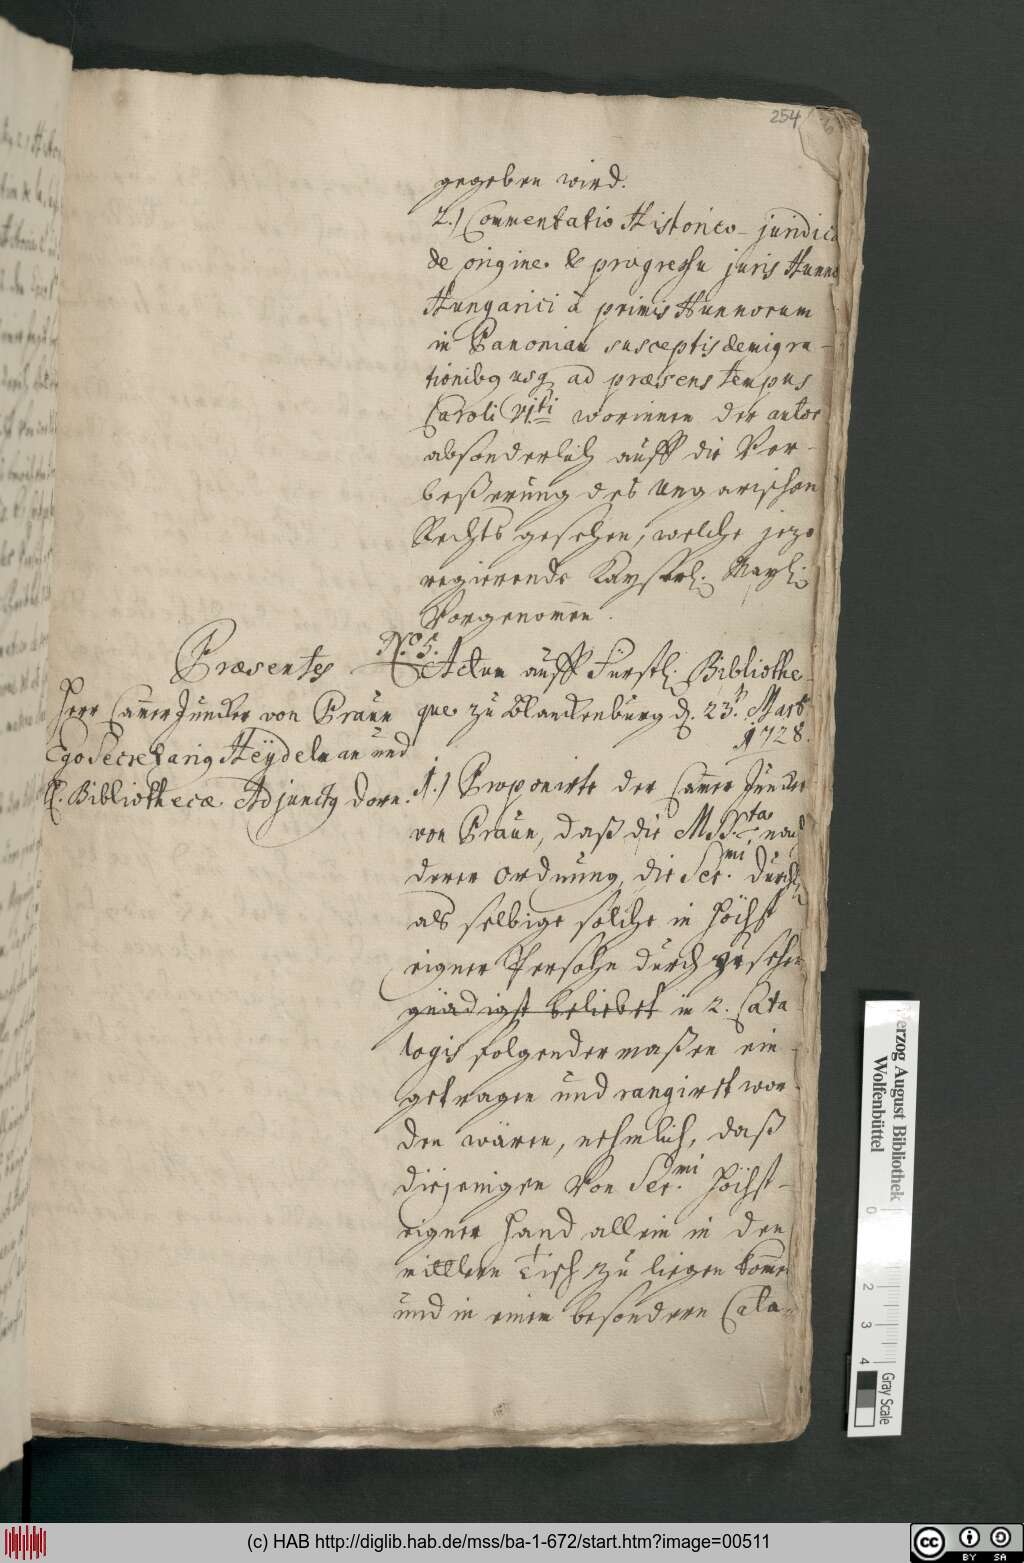 254
gegeben wird.
2.) Commentatio Historico-juridica
de origine & progressu juris Hunno
Hungarici à primis Hunnorum
in Panoniam susceptis demigra-
tionibq usq ad præsens tempus
Caroli VIti worinnen der autor
absonderlich auff die Ver-
beßerung des Ungarischen
Rechts gesehen, welche jezo
regierende Kayserl. Mayt.
Vorgenom̄en.
No. 5.
Actum auff Fürstl. Bibliothe-
que zu Blanckenburg d. 23. Mart
1728.
Præsentes
Herr Cam̄erJuncker von Praun
Ego Secretariq Heÿdelman und
Bibliothecæ Adjunctq Dorn.
1.) Proponirte der Cam̄er Juncker
von Praun, daß die MSSta nach
derer Ordnung, die Sermi durch
als selbige solche in höchst
eigner Persohn durch zu sehen
gnädigst beliebet in 2. Cata
logis folgender maßen ein-
getragen und rangiret wor-
den wären, nehmlich, daß
diejenigen Von Sermi höchst-
eigner Hand allein in den
mittlern Tisch zu liegen kom̄en
und in einem besondern Cata-
Herzog August Bibliothek
Wolfenbüttel
0
2
3
4
Gray Scale
(c) HAB http://diglib.hab.de/mss/ba-1-672/start.htm?image=00511
cc
BY
SA